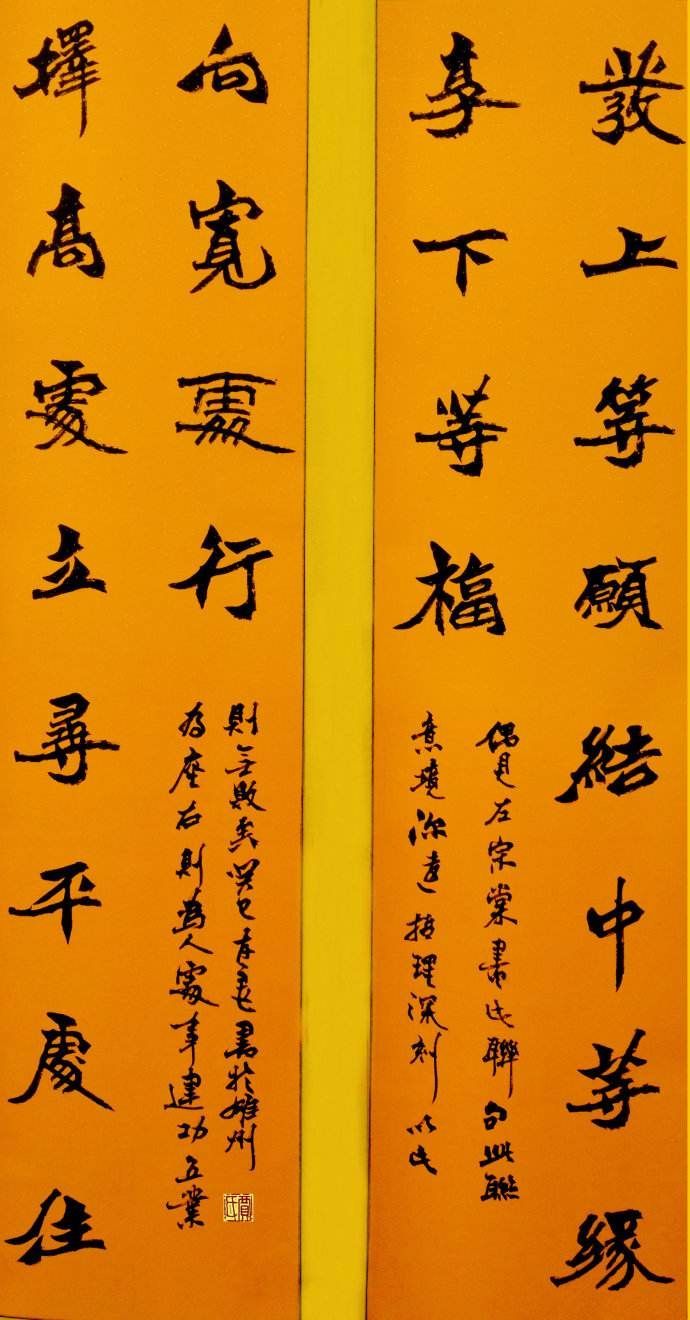 發上等願結中等緣
享下等福
偶見左宗棠書此聯句此聯
意境深遠哲理深刻以此
擇高處立尋平處住
向寬處行
為座右則為人處事建功立業
則無敗矣癸巳書於雄州